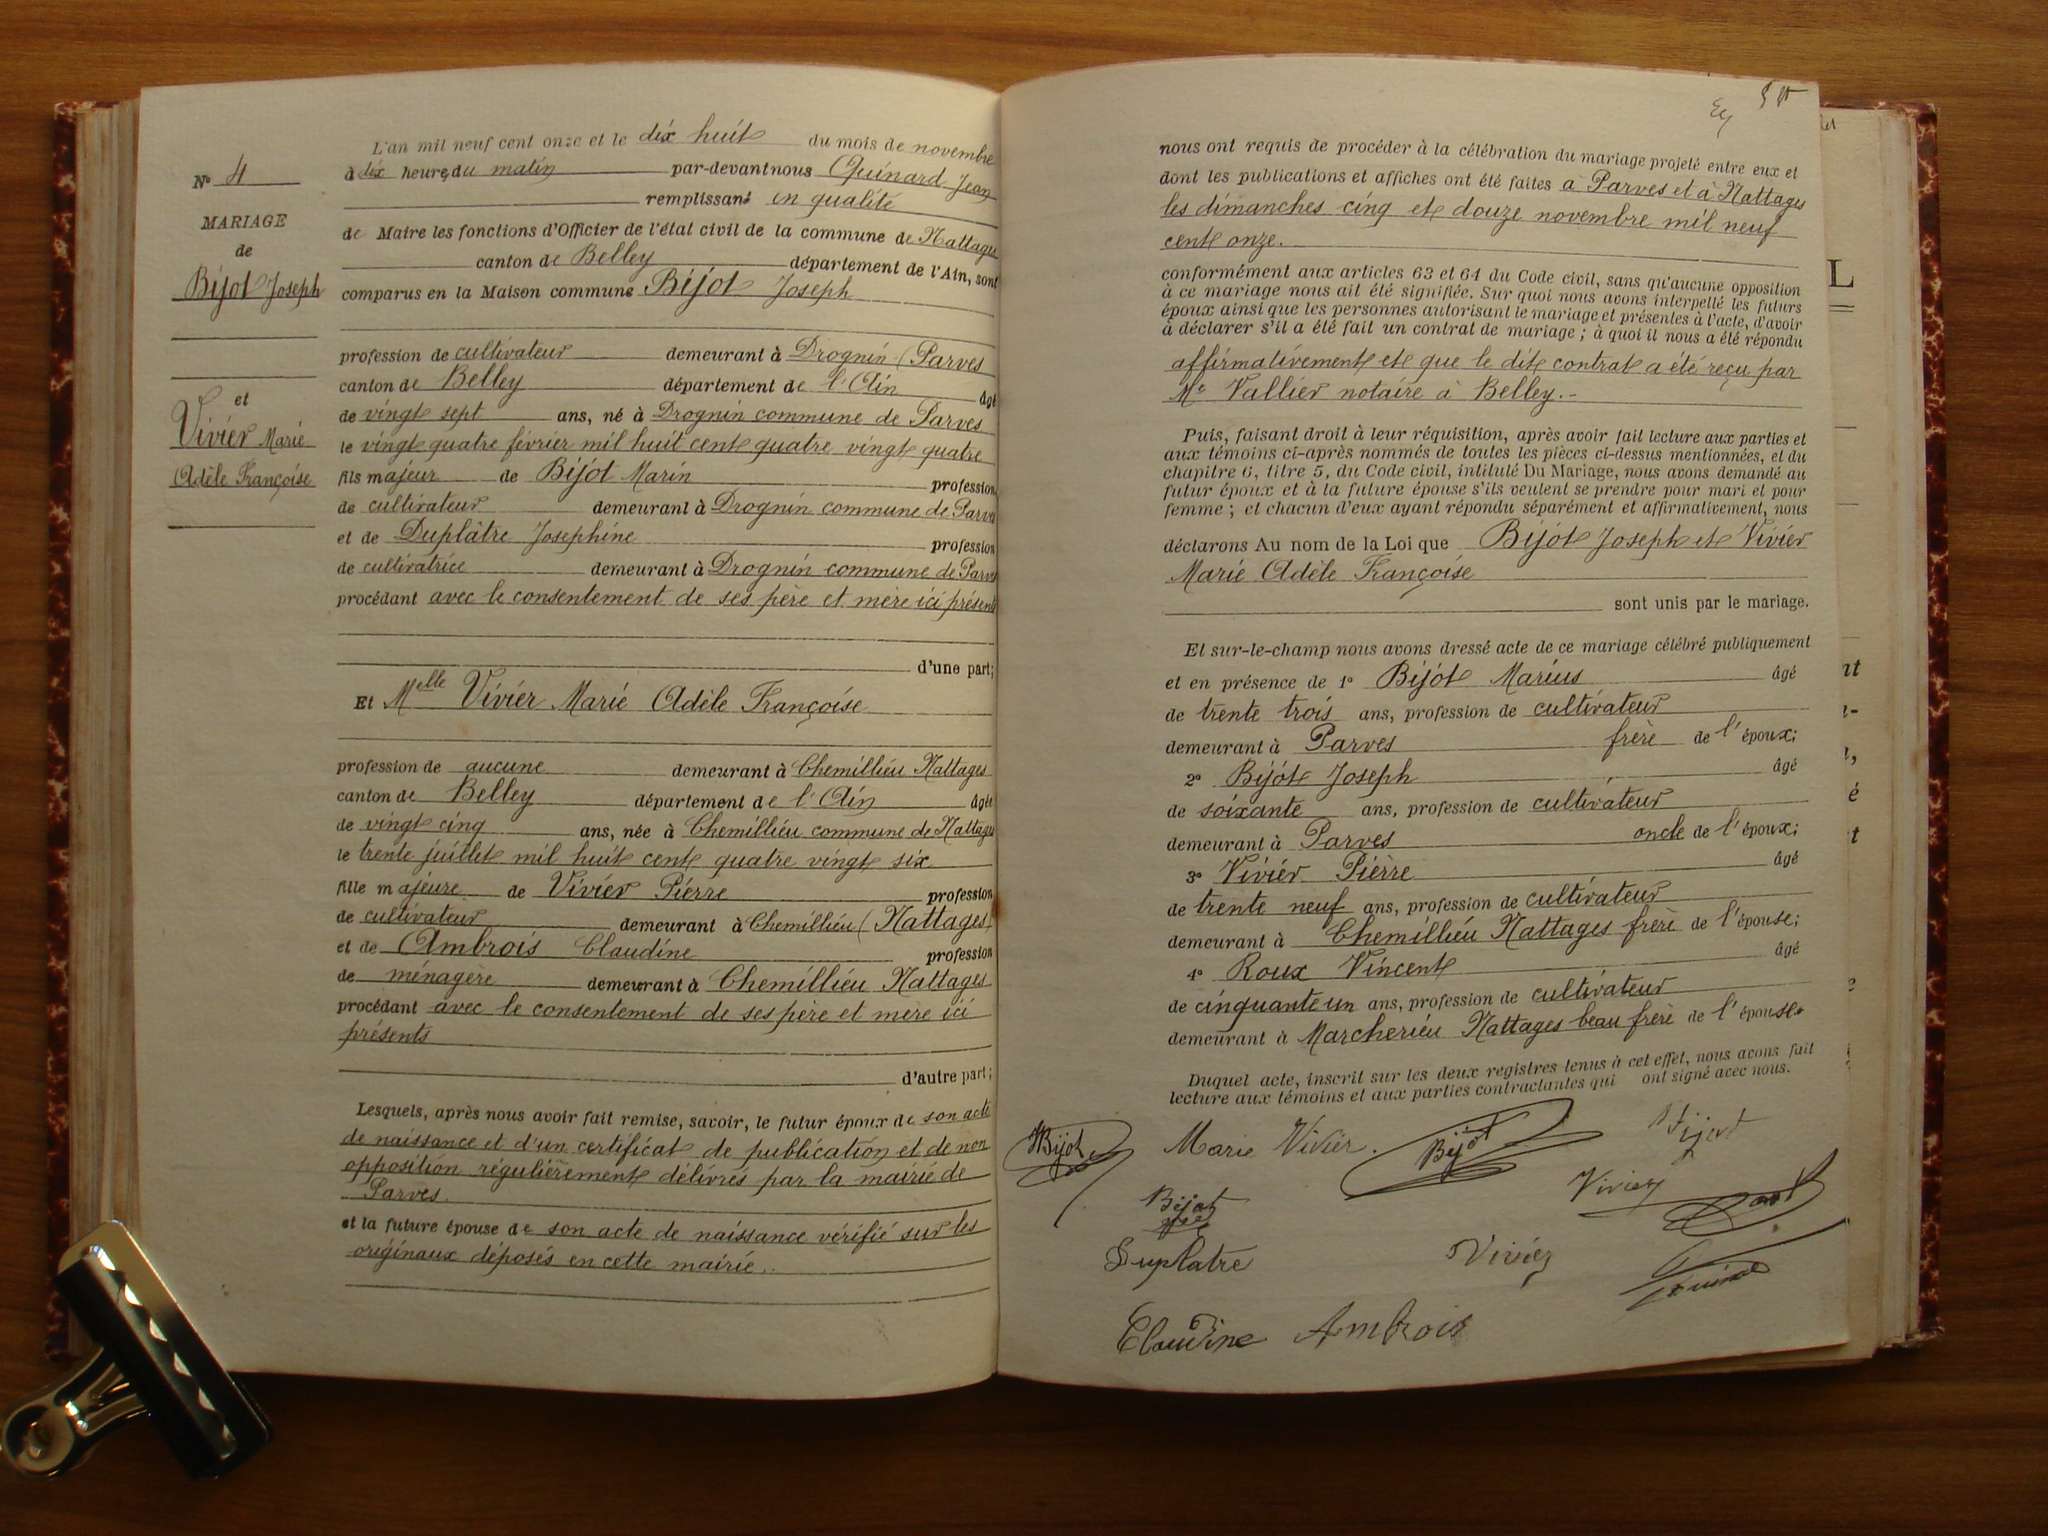 N° 4
MARIAGE
de
Bijot Joseph
et
Vivier Marie
Adèle Françoise
L'an mil neuf cent onze et le dix huit du mois de novembre
à dix heures du matin par-devant nous Guinard Jean
remplissant en qualité
de Maire les fonctions d'Officier de l'état civil de la commune de Nattages
canton de Belley département de l'Ain, sont
comparus en la Maison commune Bijot Joseph
profession de cultivateur demeurant à Drognin (Parves
canton de Belley département de l'Ain âgé
de vingt sept ans, né à Drognin commune de Parves
le vingt quatre février mil huit cent quatre vingt quatre
fils majeur de Bijot Marin profession
de cultivateur demeurant à Drognin commune de Parves
et de Duplâtre Josephine profession
de cultivatrice demeurant à Drognin commune de Parves
procédant avec le consentement de ses père et mère ici présents
d'une part;
Et Melle Vivier Marie Adèle Françoise
profession de aucune demeurant à Chemillieu Nattages
canton de Belley département de l'Ain âgée
de vingt cinq ans, née à Chemillieu commune de Nattages
le trente juillet mil huit cent quatre vingt six
fille majeure de Vivier Pierre profession
de cultivateur demeurant à Chemillieu (Nattages)
et de Ambrois Claudine profession
de ménagère demeurant à Chemillieu Nattages
procédant avec le consentement de ses père et mère ici
présents
d'autre part;
Lesquels, après nous avoir fait remise, savoir, le futur époux de son acte
de naissance et d'un certificat de publication et de non
opposition régulièrement délivrés par la mairie de
Parves
et la future épouse de son acte de naissance vérifié sur les
originaux déposés en cette mairie.
nous ont requis de procéder à la célébration du mariage projeté entre eux et
dont les publications et affiches ont été faites à Parves et à Nattages
les dimanches cinq et douze novembre mil neuf
cent onze.
conformément aux articles 63 et 64 du Code civil, sans qu'aucune opposition
à ce mariage nous ait été signifiée. Sur quoi nous avons interpellé les futurs
époux ainsi que les personnes autorisant le mariage et présentes à l'acte, d'avoir
à déclarer s'il a été fait un contrat de mariage; à quoi il nous a été répondu
affirmativement et que le dit contrat a été reçu par
Me Vallier notaire à Belley.-
Puis, faisant droit à leur réquisition, après avoir fait lecture aux parties et
aux témoins ci-après nommés de toutes les pièces ci-dessus mentionnées, et du
chapitre 6, titre 5, du Code civil, intitulé Du Mariage, nous avons demandé au
futur époux et à la future épouse s'ils veulent se prendre pour mari et pour
femme; et chacun d'eux ayant répondu séparément et affirmativement, nous
déclarons Au nom de la Loi que Bijot Joseph et Vivier
Marie Adèle Françoise
sont unis par le mariage.
Et sur-le-champ nous avons dressé acte de ce mariage célébré publiquement
et en présence de 1° Bijot Marius âgé
de trente trois ans, profession de cultivateur
demeurant à Parves frère de l'époux;
2° Bijot Joseph âgé
de soixante ans, profession de cultivateur
demeurant à Parves oncle de l'époux;
3° Vivier Pierre âgé
de trente neuf ans, profession de cultivateur
demeurant à Chemillieu Nattages frère de l'épouse;
4° Roux Vincent âgé
de cinquante un ans, profession de cultivateur
demeurant à Marcherieu Nattages beau frère de l'épouse.
Duquel acte, inscrit sur les deux registres tenus à cet effet, nous avons fait
lecture aux témoins et aux parties contractantes qui ont signé avec nous.
Bijot Marie Vivier. Bijot Bijot
Bijot Vivier
Duplatre Vivier
Claudine Ambrois